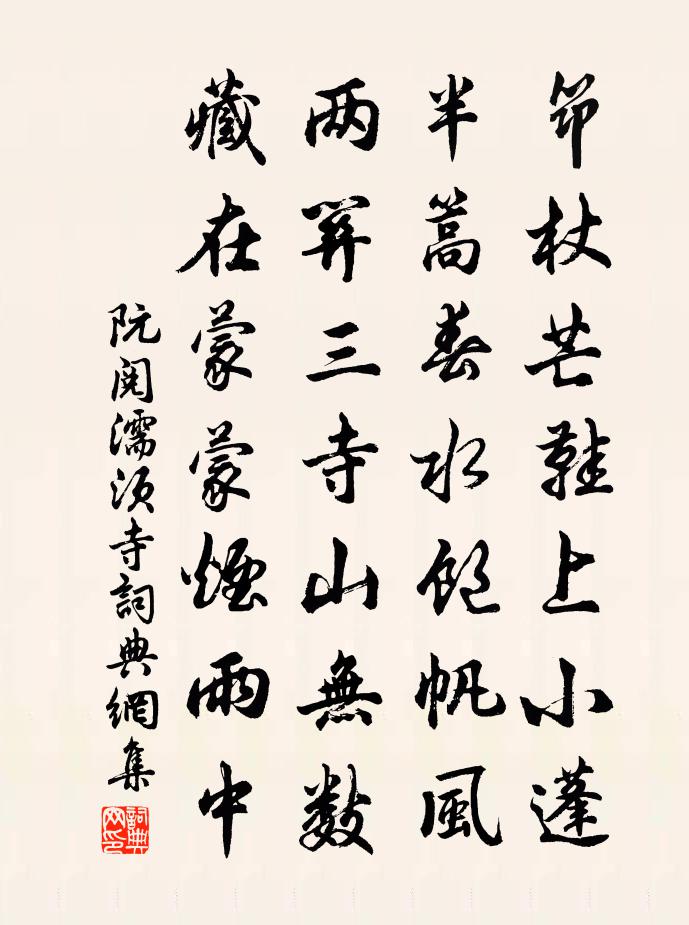 筇杖芒鞋上小蓬
半篙春水飽帆風
两笄三寺山無数
藏在蒙蒙煙雨中
阮閱濡須寺詞典網集
詞典网印